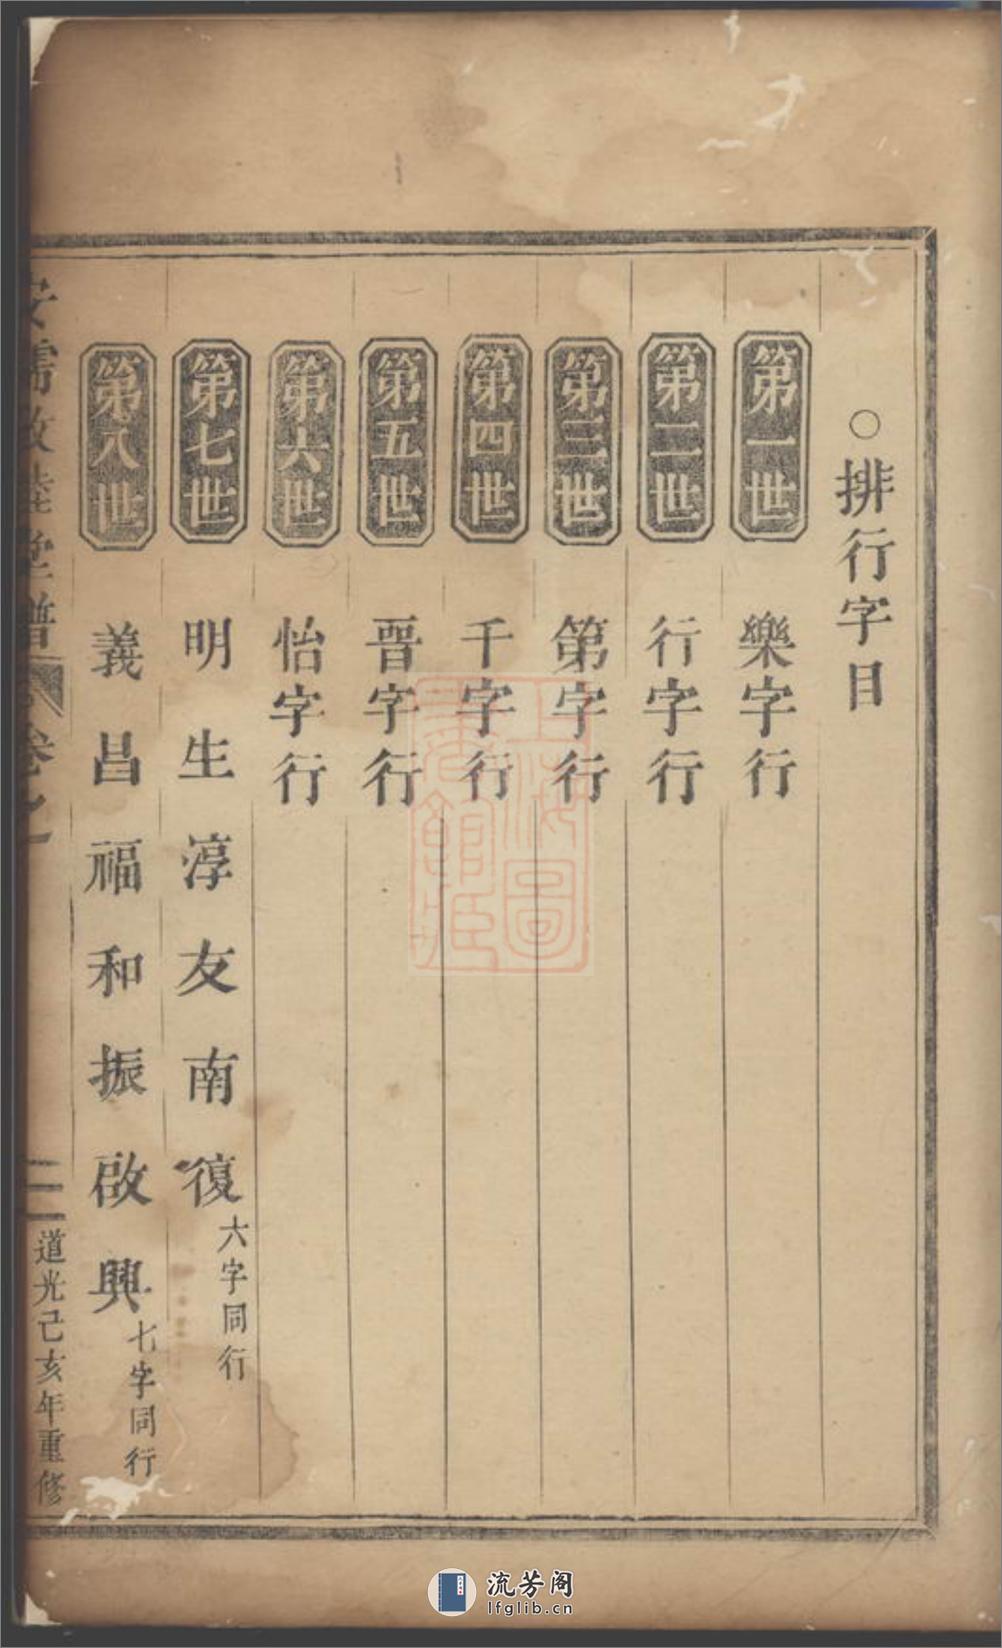 ○排行字目
第一世 樂字行
第二世 行字行
第三世 第字行
第四世 千字行
第五世 晋字行
第六世 怡字行
第七世 明生淳友南復六字同行
第八世 義昌福和振啟興七字同行
敦睦堂譜 卷之
二 道光己亥年重修
上海圖書館藏
流芳阁
lfglib.cn